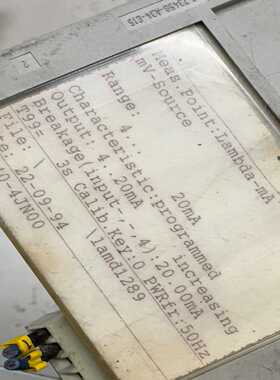 2
Meas.Point:Lambda-mA
mV-Source
Range: 4... 20mA
Characteristic:programmed
Output: 4. 20mA increasing
Breakage(input-,-,4):20.00mA
T99: 3s Calib.Key:0 PWRfr:50Hz
File: \ \lamd1289
22-09-94
-4JN00